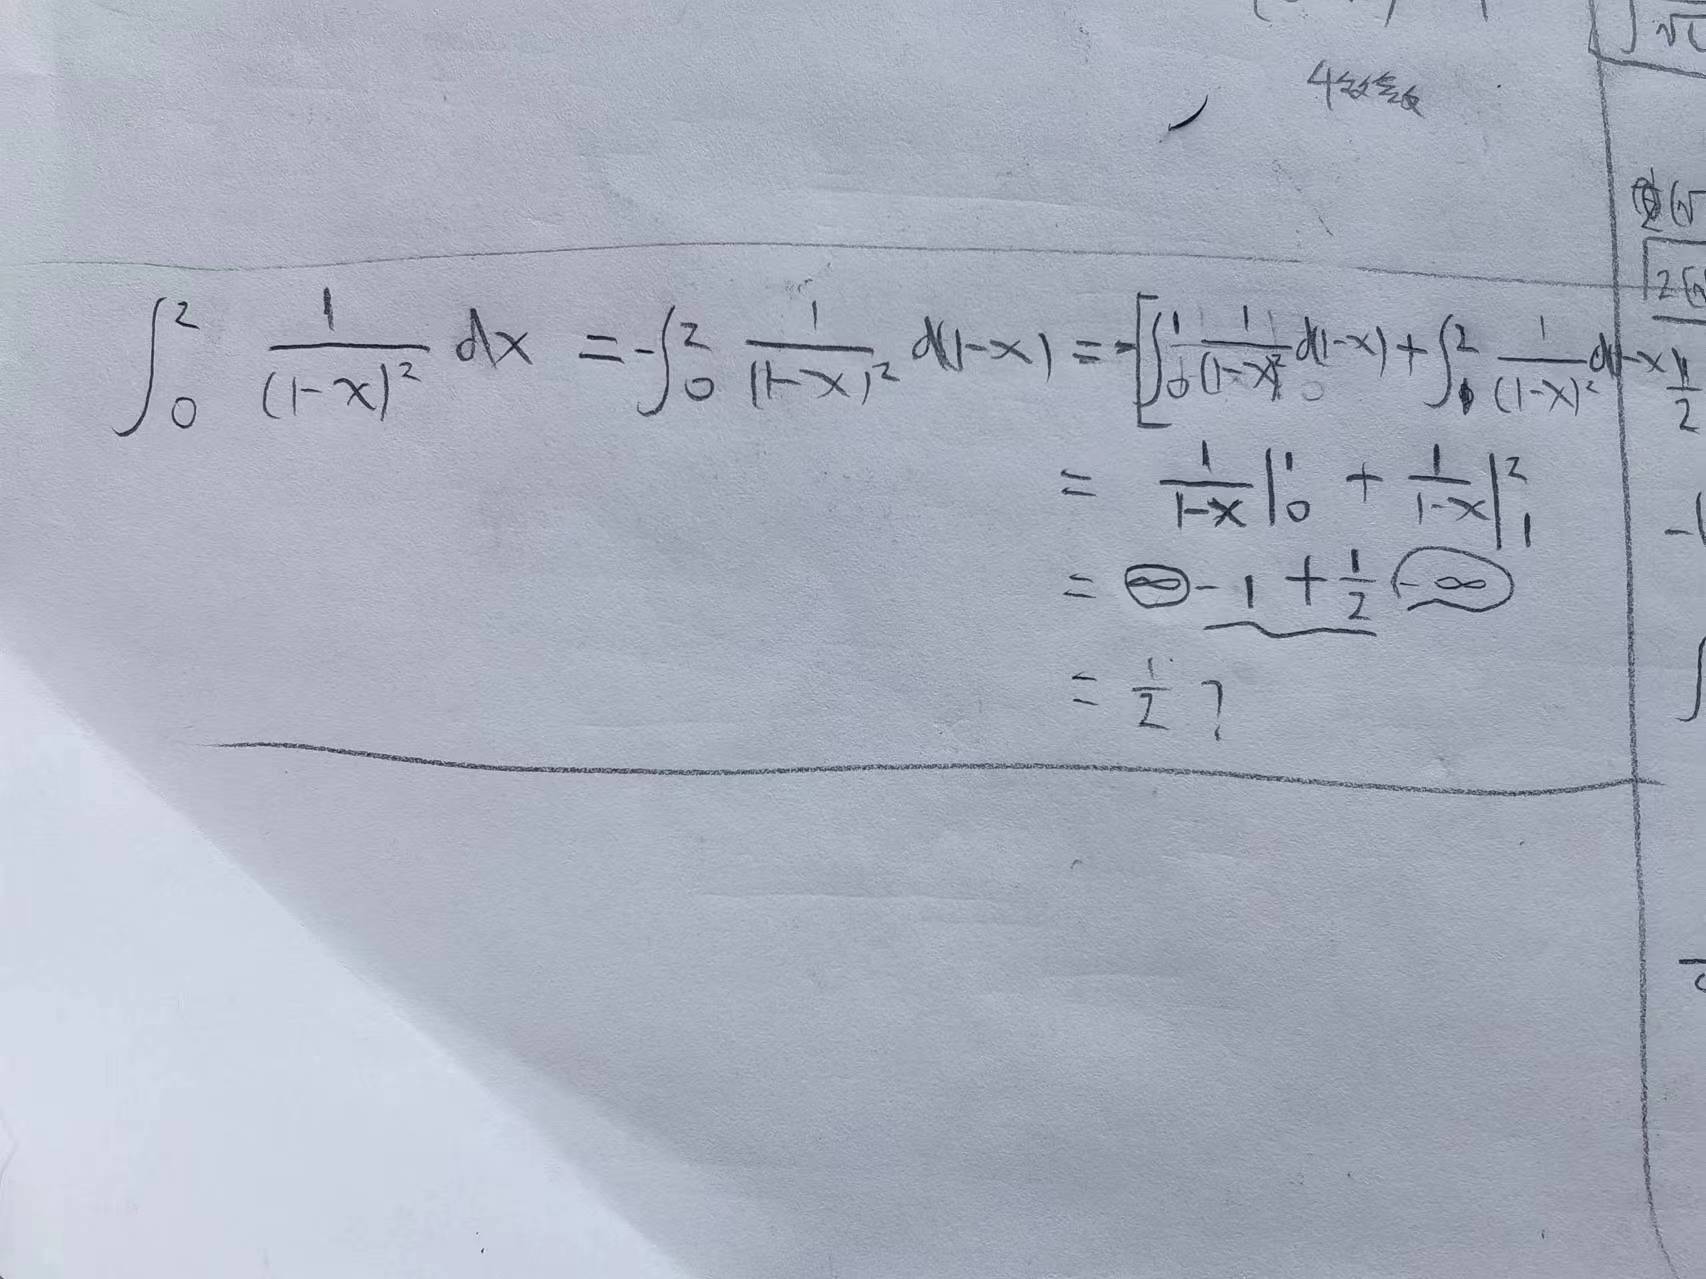 4级数
∫₀² 1/(1-x)² dx = -∫₀² 1/(1-x)² d(1-x) = -[∫₀¹ 1/(1-x)² d(1-x) + ∫₁² 1/(1-x)² d1-x
= 1/(1-x) |₀¹ + 1/(1-x) |₁²
= ∞ - 1 + 1/2 - ∞
= 1/2 ?